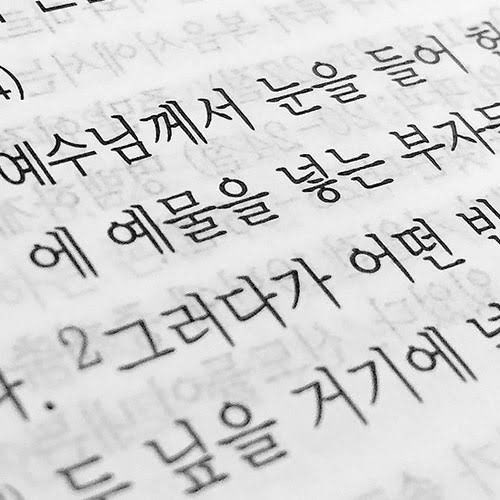 4)
예수님께서 눈을 들어 헌
에 예물을 넣는 부자들
다. 2그러다가 어떤 빈
두 닢을 거기에 넣